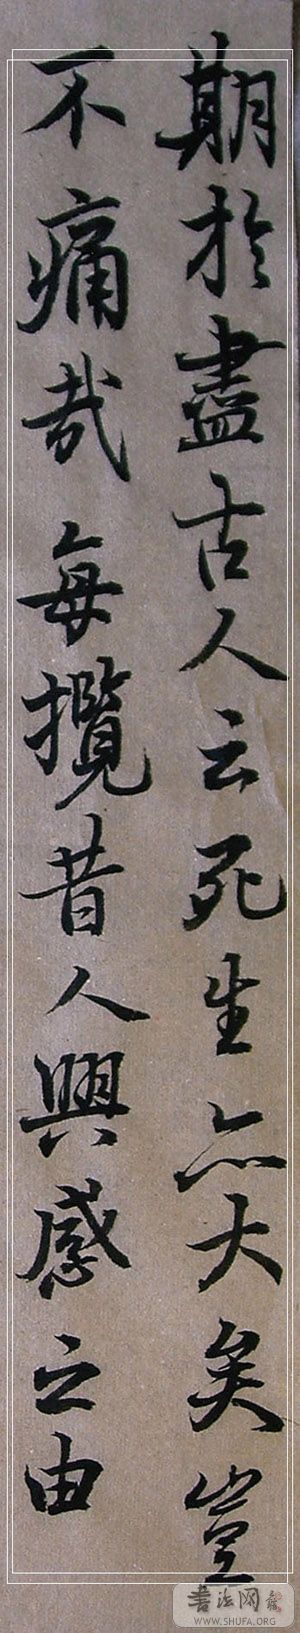 期於盡古人云死生亦大矣豈
不痛哉每攬昔人興感之由
书法网
WWW.SHUFA.ORG